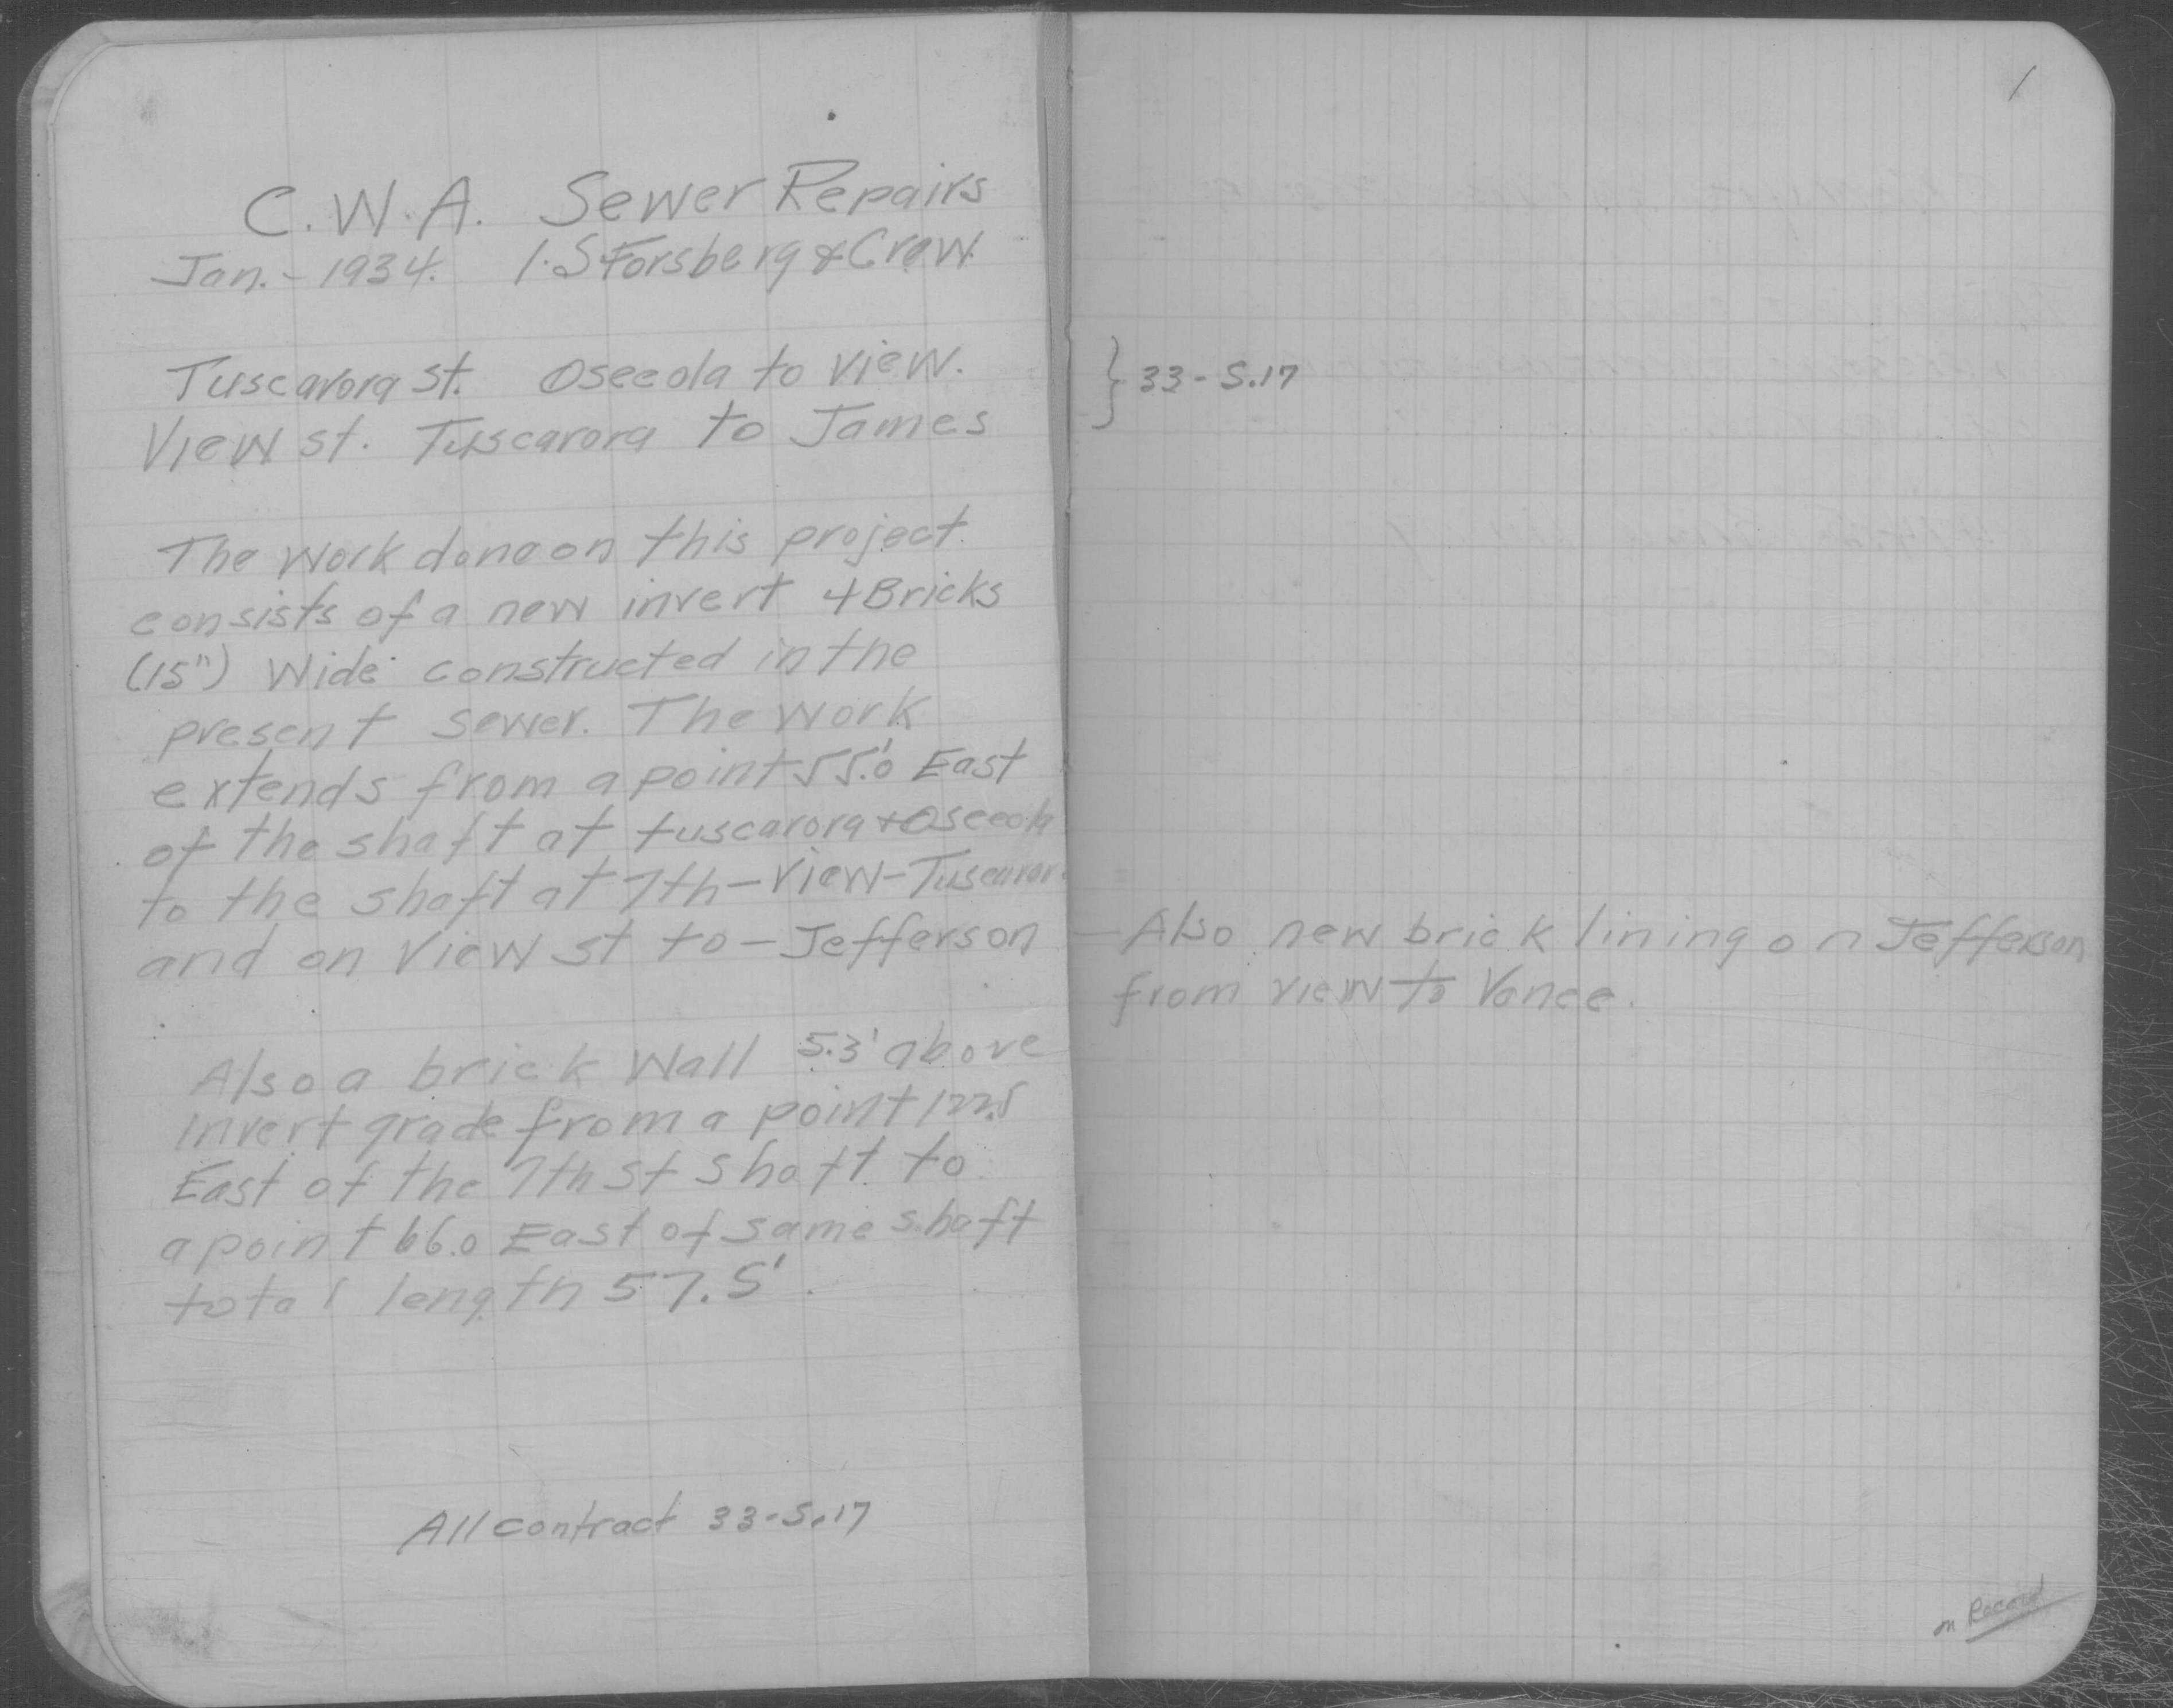 C.W.A. Sewer Repairs
Jan. - 1934. I.S Forsberg & Crew.
Tuscarora st. Osceola to View.
View st. Tuscarora to James
The work done on this project
consists of a new invert 4 Bricks
(15") wide constructed in the
present sewer. The work
extends from a point 55.0' East
of the shaft at tuscarora + Osceola
to the shaft at 7th - View - Tuscarora
and on View st to - Jefferson
Also a brick Wall 5.3' above
invert grade from a point 122.5
East of the 7th st shaft to
a point 66.0 East of same shaft
total length 57.5'.
All contract 33-S.17
1
} 33-S.17
- Also new brick lining on Jefferson
from view to Vance.
on Record